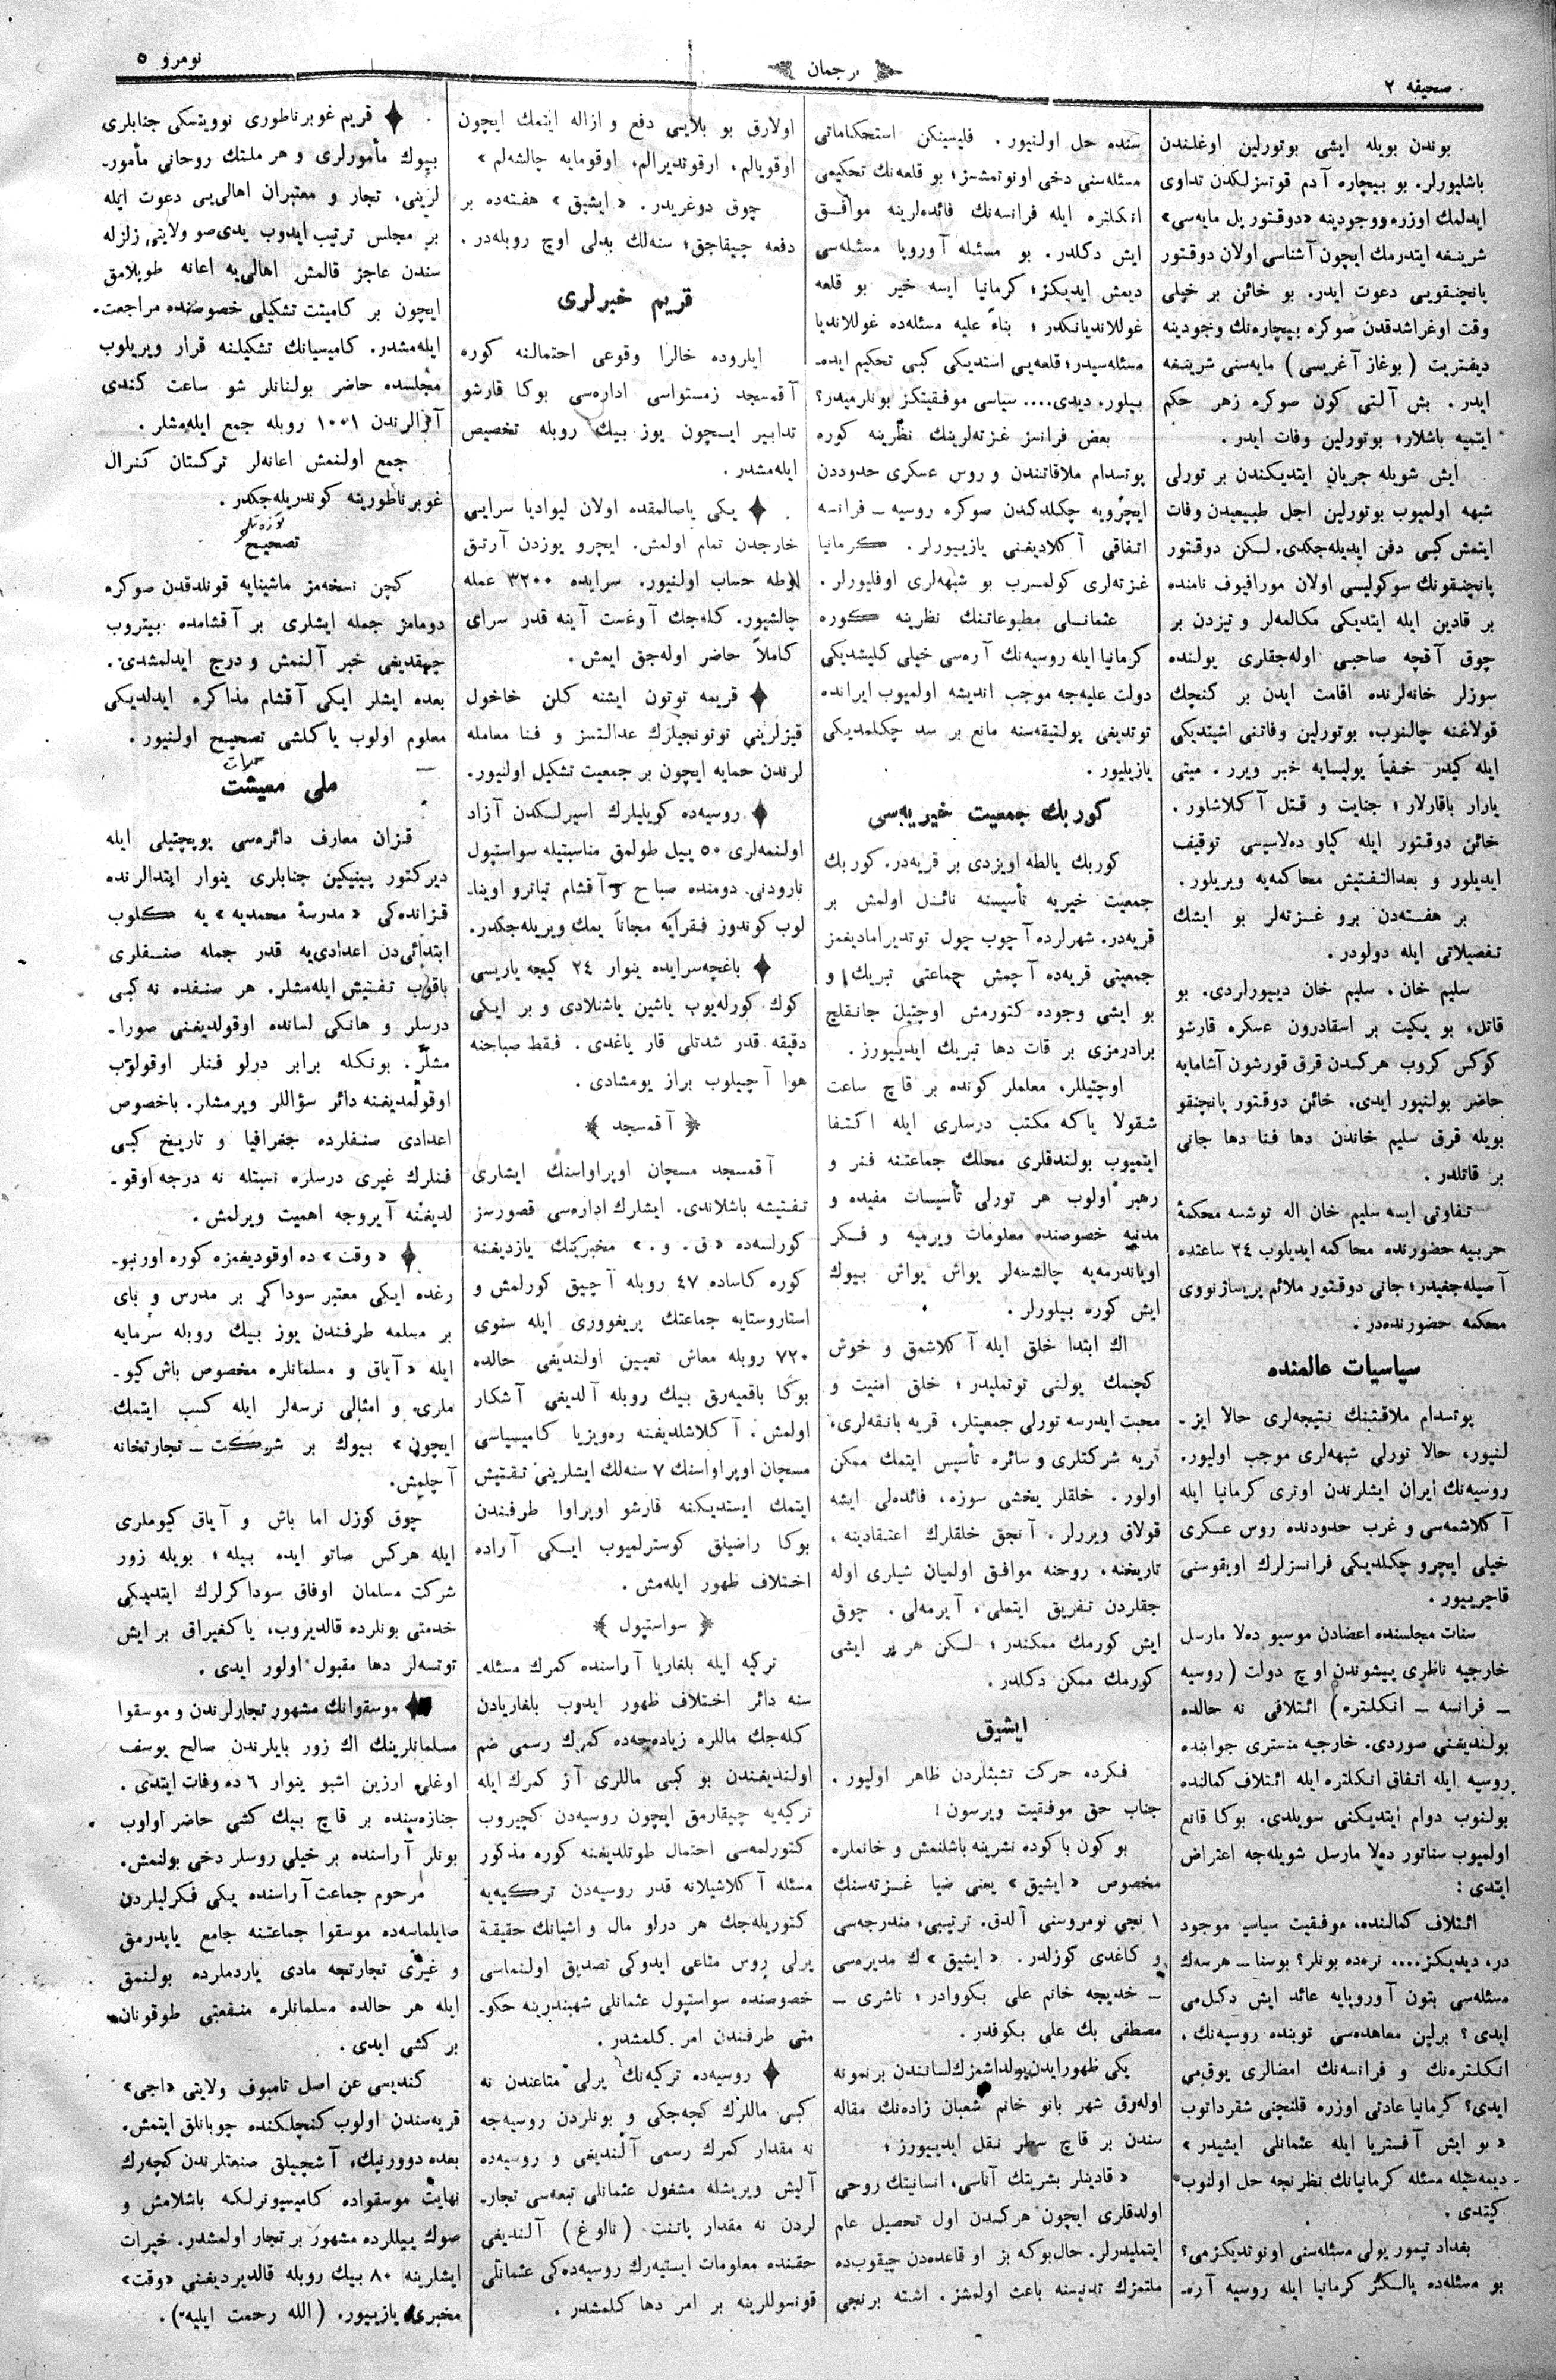 صحیفه ۲
ترجمان
نومرو ۵
بوندن بویله ایشی بوتورلین اوغلندن
باشلیورلر. بو بیچاره آدم قوتسزلکدن تداوی
ایدلمك اوزره ووجودینه «دوقتور پل مایه‌سی»
شرینغه ایتدرمك ایچون آشناسی اولان دوقتور
پانچنقویی دعوت ایدر. بو خائن بر خیلی
وقت اوغراشدقدن صوکره بیچاره‌نك وجودینه
دیفتریت (بوغاز آغریسی) مایه‌سنی شرینغه
ایدر. بش آلتی کون صوکره زهر حکم
ایتمیه باشلار؛ بوتورلین وفات ایدر.
ایش شویله جریان ایتدیکندن بر تورلی
شبهه اولمیوب بوتورلین اجل طبیعیدن وفات
ایتمش کبی دفن ایدیله‌جکدی. لـکن دوقتور
پانچنقونك سوکولیسی اولان مورافیوف نامنده
بر قادین ایله ایتدیکی مکالمه‌لر و تیزدن بر
چوق آقچه صاحبی اوله‌جقلری یولنده
سوزلر خانه‌لرنده اقامت ایدن بر کنجك
قولاغنه چالنوب، بوتورلین وفاتنی اشیتدیکی
ایله کیدر خـفیاً پولیسایه خبر ویرر. میتی
یارار باقارلار؛ جنایت و قـتل آکلاشلور.
خائن دوقتور ایله کیاو ده‌لاسیسی توقیف
ایدیلور و بعدالتـفتیش محاکمه‌یه ویریلور.
بر هفـته‌دن برو غـزته‌لر بو ایشك
تـفصیلاتی ایله دولودر.
سلیم خان، سلیم خان دییورلردی. بو
قاتل، بو یکیت بر اسقادرون عسکره قارشو
کوکس کروب هرکسدن قرق قورشون آشامایه
حاضر بولنیور ایدی. خائن دوقتور پانچنقو
بویله قرق سلیم خاندن دها فـنا دها جانی
بر قاتلدر.
تـفاوتی ایسه سلیم خان اله توشسه محکمۀ
حربیه حضورنده محاکمه ایدیلوب ۲۴ ساعتده
آصیله‌جغیدر؛ جانی دوقـتور ملائم پریساژنووی
محکمه حضورنده‌در.
سیاسیات عالمنده
پوتسدام ملاقـتنك نـتیجه‌لری حالا ایز-
لـنیور، حالا تورلی شبهه‌لری موجب اولیور.
روسیه‌نك ایران ایشلرندن اوتری کرمانیا ایله
آکلاشمه‌سی و غرب حدودنده روس عسکری
خیلی ایچرو چکلدیکی فرانسزلرك اویقوسنی
قاچریـیور.
سنات مجلسنده اعضادن موسیو ده‌لا مارسل
خارجیه ناظری پیشوندن اوچ دولت (روسیه
– فرانسه – انـکلـتره) ائـتلافی نه حالده
بولـندیغنی صوردی. خارجیه منستری جوابنده
روسیه ایله اتـفاق انکلتره ایله ائـتلاف کمالنده
بولـنوب دوام ایتدیـکنی سویلدی. بوکا قانع
اولمیوب سناتور ده‌لا مارسل شویله‌جه اعتراض
ایتدی:
ائـتلاف کمالـنده، موفـقیت سیاسیه موجود
در، دیدیـکز.... نره‌ده بونلر؟ بوسنا – هرسه‌ك
مسئله‌سی بتون آوروپایه عائد ایش دکـل‌می
ایدی؟ برلین معاهده‌سی توبنده روسیه‌نك،
انکلتره‌نك و فرانسه‌نك امضالری یوق‌می
ایدی؟ کرمانیا عادتی اوزره قلنچنی شقرداتوب
«بو ایش آفستریا ایله عثمانلی ایشیدر»
دیمه‌سیله مسئله کرمانیانك نظرنجه حل اولنوب
کیتدی.
بغداد تیمور یولی مسئله‌سنی اونوتدیکزمی؟
بو مسئله‌ده یالـکز کرمانیا ایله روسیه آره-
سنده حل اولنیور. فلیسینکن استحکاماتی
مسئله‌سنی دخی اونوتمشسز؛ بو قلعه‌نك تحکیمی
انکلتره ایله فرانسه‌نك فائده‌لرینه موافـق
ایش دکلدر. بو مسئله آوروپا مسئله‌سی
دیمش ایدیکز؛ کرمانیا ایسه خیر بو قلعه
غوللاندیانکدر؛ بناءً علیه مسئله‌ده غوللاندیا
مسئله‌سیدر؛ قلعه‌یی استدیکی کبی تحکیم ایده-
بیلور، دیدی.... سیاسی موفـقیتکز بونلرمیدر؟
بعض فرانسز غـزته‌لرینك نظرینه کوره
پوتسدام ملاقاتـندن و روس عسکری حدوددن
ایچرویه چکلدکدن صوکره روسیه – فرانسه
اتـفاقی آکلادیغنی یازییورلر. کرمانیا
غـزته‌لری کولمسرب بو شبهه‌لری اوفلیورلر.
عثمانـلی مطبوعاتـنك نظرینه کوره
کرمانیا ایله روسیه‌نك آره‌سی خیلی کلیشدیکی
دولت علیه‌جه موجب اندیشه اولمیوب ایرانده
توتدیغی پولتیقه‌سنه مانع بر سد چکلمدیکی
یازیلیور.
کوربك جمعیت خیریه‌سی
کوربك یالطه اویزدی بر قریه‌در. کوربك
جمعیت خیریه تأسیسنه نائـل اولمش بر
قریه‌در. شهرلرده آچوب چول توتدیرامادیغمز
جمعیتی قریه‌ده آچمش جماعتی تبریك و
بو ایشی وجوده کتورمش اوچتیل جانـقلچ
برادرمزی بر قات دها تبریك ایدییورز.
اوچتیللر، معلملر کونده بر قاچ ساعت
شقولا یاکه مکتب درسلری ایله اکـتـفا
ایتمیوب بولـندقلری محلك جماعتـنه فنر و
رهبر اولوب هر تورلی تأسیسات مفیده و
مدنیه خصوصنده معلومات ویرمیه و فـکر
اویاندرمه‌یه چالشسه‌لر یواش یواش بیوك
ایش کوره بیلورلر.
اك ابتدا خلق ایله آکلاشمق و خوش
کچنمك یولـنی توتملیدر؛ خلق امنیت و
محبت ایدرسه تورلی جمعیتلر، قریه بانـقه‌لری،
قریه شرکتلری و سائره تأسیس ایتمك ممکن
اولور. خلقلر یخشی سوزه، فائده‌لی ایشه
قولاق ویررلر. آنجق خلقلرك اعتـقادینه،
تاریخنه، روحنه موافـق اولمیان شیلری اوله
جقلردن تـفریق ایتملی، آیرمه‌لی. چوق
ایش کورمك ممکندر؛ لـکن هر بر ایشی
کورمك ممکن دکلدر.
ایشیق
فـکرده حرکت تشبثلردن ظاهر اولیور.
جناب حق موفـقیت ویرسون!
بو کون باکوده نشرینه باشلنمش و خانملره
مخصوص «ایشیق» یعنی ضیا غـزته‌سنك
۱ نجی نومروسنی آلدق. ترتیبی، مندرجه‌سی
و کاغدی کوزلدر. «ایشیق» ك مدیره‌سی
– خدیجه خانم علی بکووادر؛ ناشری –
مصطفی بك علی بکوفدر.
یکی ظهور ایدن یولداشمزك لسانـندن بر نمونه
اوله‌رق شهر بانو خانم شعبان زاده‌نك مقاله
سندن بر قاچ سطر نـقل ایدییورز؛
«قادینلر بشریتك آناسی، انسانیتك روحی
اولدقلری ایچون هرکسدن اول تحصیل علم
ایتملیدرلر. حال‌بوکه بز او قاعده‌دن چیقوب‌ده
ملتمزك تدنیسنه باعث اولمشز. اشته برنجی
اولارق بو بلایی دفع و ازاله ایتمك ایچون
اوقویالم، اوقوتدیرالم، اوقومایه چالشه‌لم»
چوق دوغریدر. «ایشیق» هفـته‌ده بر
دفعه چیقاجق؛ سنه‌لك بدلی اوچ روبله‌در.
قریم خبرلری
ایلروده خالرا وقوعی احتمالـنه کوره
آقمسجد زمستواسی اداره‌سی بوکا قارشو
تدابیر ایـچون یوز بیك روبله تخصیص
ایله‌مشدر.
یکی یاصالمقده اولان لیوادیا سرایی
خارجدن تمام اولمش. ایچرو یوزدن آرتـق
اوطه حساب اولـنیور. سرایده ۳۲۰۰ عمله
چالشیور. کله‌جك آوغست آینه قدر سرای
کاملاً حاضر اوله‌جق ایمش.
قریمه توتون ایشنه کلن خاخول
قیزلرینی توتونجیلرك عدالتـسز و فـنا معامله
لرندن حمایه ایچون بر جمعیت تشکیل اولنیور.
روسیه‌ده کویلیلرك اسیرلـکدن آزاد
اولنمه‌لری ۵۰ ییل طولمق مناسبتیله سواستپول
نارودنی دومنده صباح و آقشام تیاترو اوینا-
لوب کوندوز فـقرایه مجاناً یمك ویریله‌جکدر.
باغچه‌سرایده ینوار ۲۴ کیجه یاریسی
کوك کورله‌یوب یاشین یاشنلادی و بر ایـکی
دقیقه قدر شدتلی قار یاغدی. فـقط صباحنه
هوا آچیلوب براز یومشادی.
﴿ آقمسجد ﴾
آقمسجد مسچان اوپراواسنك ایشلری
تـفتیشه باشلاندی. ایشلرك اداره‌سی قصورسز
کورلسه‌ده «ق. و.» مخبرینك یازدیغنه
کوره کاساده ۴۷ روبله آچیق کورلمش و
استاروستایه جماعتك پریغووری ایله سنوی
۷۲۰ روبله معاش تعیین اولـندیغی حالده
بوکا باقمیه‌رق بیك روبله آلدیغی آشکار
اولمش. آکلاشلدیغنه ره‌ویزیا کامیسیاسی
مسچان اوپراواسنك ۷ سنه‌لك ایشلرینی تـفتیش
ایتمك ایستدیکنه قارشو اوپراوا طرفـندن
بوکا راضیلق کوسترلمیوب ایـکی آراده
اخـتلاف ظهور ایله‌مش.
﴿ سواستپول ﴾
ترکیه ایله بلغاریا آراسنده کمرك مسئله-
سنه دائر اخـتلاف ظهور ایدوب بلغاریادن
کله‌جك ماللره زیاده‌جه‌ده کمرك رسمی ضم
اولـندیغـندن بو کبی ماللری آز کمرك ایله
ترکیه‌یه چیقارمق ایچون روسیه‌دن کچیروب
کتورلمه‌سی احتمال طوتلدیغنه کوره مذکور
مسئله آکلاشیلانه قدر روسیه‌دن ترکیه‌یه
کتوریله‌جك هر درلو مال و اشیانك حقیقة
یرلی روس متاعی ایدوکی تصدیق اولـنماسی
خصوصنده سواستپول عثمانلی شهبندرینه حکو-
متی طرفـندن امر کلمشدر.
روسیه‌ده ترکیه‌نك یرلی متاعندن نه
کبی ماللرك کچه‌جکی و بونلردن روسیه‌جه
نه مقدار کمرك رسمی آلـندیغی و روسیه‌ده
آلیش ویریشله مشغول عثمانلی تبعه‌سی تجار-
لردن نه مقدار پاتنت (نالوغ) آلـندیغی
حقـنده معلومات ایستیه‌رك روسیه‌ده‌کی عثمانلی
قونسوللرینه بر امر دها کلمشدر.
قریم غوبرناطوری نوویتسکی جنابلری
بیوك مأمورلری و هر ملـتك روحانی مأمور-
لرینی، تجار و معتبران اهالی‌یی دعوت ایله
بر مجلس ترتیب ایدوب یدی‌صو ولایتی زلزله
سندن عاجز قالمش اهالی‌یه اعانه طوپلامق
ایچون بر کامیتت تشکیلی خصوصنده مراجعت
ایله‌مشدر. کامیسیانك تشکیلـنه قرار ویریلوب
مجلسده حاضر بولـنانلر شو ساعت کندی
آرالرندن ۱۰۰۱ روبله جمع ایله‌مشلر.
جمع اولـنمش اعانه‌لر ترکستان کنرال
غوبرناطورینه کوندریله‌جکدر.
تصحیح
کچن نسخه‌مز ماشینایه قونلدقدن صوکره
دومامز جمله ایشلری بر آقشامده بیتروب
چیقدیغی خبر آلـنمش و درج ایدلمشدی.
بعده ایشلر ایکی آقشام مذاکره ایدلدیکی
معلوم اولوب یاکلشی تصحیح اولـنیور.
ملی معیشت
قـزان معارف دائره‌سی پوپچتیلی ایله
دیرکتور پینیکین جنابلری ینوار ابتدالرنده
قـزانده‌کی «مدرسۀ محمدیه» یه کلوب
ابتدائی‌دن اعدادی‌یه قدر جمله صنـفلری
باقوب تـفتیش ایله‌مشلر. هر صنـفده نه کبی
درسلر و هانکی لسانده اوقولدیغنی صورا-
مشلر. بونکله برابر درلو فـنلر اوقولوب
اوقولمدیغـنه دائر سؤاللر ویرمشلر. باخصوص
اعدادی صنـفلرده جغرافیا و تاریخ کبی
فـنلرك غیری درسلره نسبتله نه درجه اوقو-
لدیغـنه آیروجه اهمیت ویرلمش.
«وقت» ده اوقودیغمزه کوره اورنبو-
رغده ایـکی معتبر سوداکر بر مدرس و بای
بر مسلمه طرفـندن یوز بیك روبله سرمایه
ایله «آیاق و مسلمانلره مخصوص باش کیو-
ملری و امثالی نرسه‌لر ایله کسب ایتمك
ایچون» بیوك بر شرکت – تجارتخانه
آچلمش.
چوق کوزل اما باش و آیاق کیوملری
ایله هرکس صاتو ایده بیله؛ بویله زور
شرکت مسلمان اوفاق سوداکرلرك ایتدیـکی
خدمتی بونلرده قالدیروب، یاکغیراق بر ایش
توتسه‌لر دها مقبول اولور ایدی.
موسقوانك مشهور تجارلرندن و موسقوا
مسلمانلرینك اك زور بایلرندن صالح یوسف
اوغلی ارزین اشبو ینوار ۶ ده وفات ایتدی.
جنازه‌سنده بر قاچ بیك کشی حاضر اولوب
بونلر آراسنده بر خیلی روسلر دخی بولنمش.
مرحوم جماعت آراسنده یکی فـکرلیلردن
صایلماسه‌ده موسقوا جماعتـنه جامع یاپدرمق
و غیری تجارتجه مادی یاردملرده بولـنمق
ایله هر حالده مسلمانلره منـفعتی طوقونان
بر کشی ایدی.
کندیسی عن اصل تامبوف ولایتی «اجی»
قریه‌سندن اولوب کنچلـکنده چوبانلق ایتمش.
بعده دوورنیك، آشچیلق صنعتلرندن کچه‌رك
نهایت موسقواده کامیسیونرلـکه باشلامش و
صوك ییللرده مشهور بر تجار اولمشدر. خیرات
ایشلرینه ۸۰ بیك روبله قالدیردیغنی «وقت»
مخبری یازییور. (الله رحمت ایلیه).